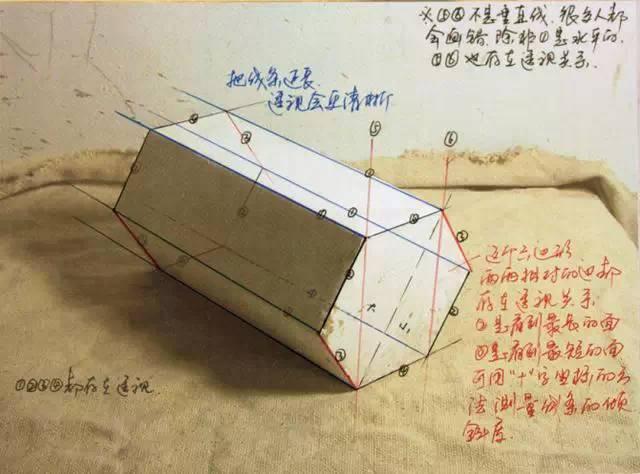 ※⑤⑥不是垂直线.很多人都
会画错.除非①是水平的.
⑤⑥也存在透视关系.
把线条延长
透视会更清晰
⑤
⑥
这个六边形
两两相对的边都
存在透视关系.
①是看到最长的面
②是看到最短的面
可用“十”字坐标的方
法测量线条的倾
斜度.
①②③④都存在透视.